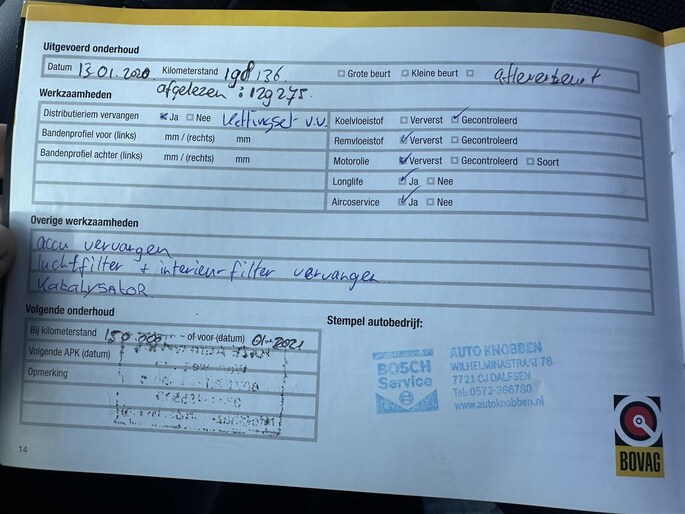 Uitgevoerd onderhoud
Datum 13.01.2020 Kilometerstand 198136. Grote beurt Kleine beurt afleverbeurt
afgelezen : 129275.
Werkzaamheden
Distributieriem vervangen Ja Nee kettingset v.v. Koelvloeistof Ververst Gecontroleerd
Bandenprofiel voor (links) mm / (rechts) mm Remvloeistof Ververst Gecontroleerd
Bandenprofiel achter (links) mm / (rechts) mm Motorolie Ververst Gecontroleerd Soort
Longlife Ja Nee
Aircoservice Ja Nee
Overige werkzaamheden
accu vervangen
luchtfilter + interieurfilter vervangen
KatalysAtoR.
Volgende onderhoud
Bij kilometerstand 150 000 - of voor (datum) 01-2021
Volgende APK (datum)
Opmerking
Stempel autobedrijf:
BOSCH
Service
AUTO KNOBBEN
WILHELMINASTRAAT 78
7721 CJ DALFSEN
Tel: 0572-366780
www.autoknobben.nl
BOVAG
14